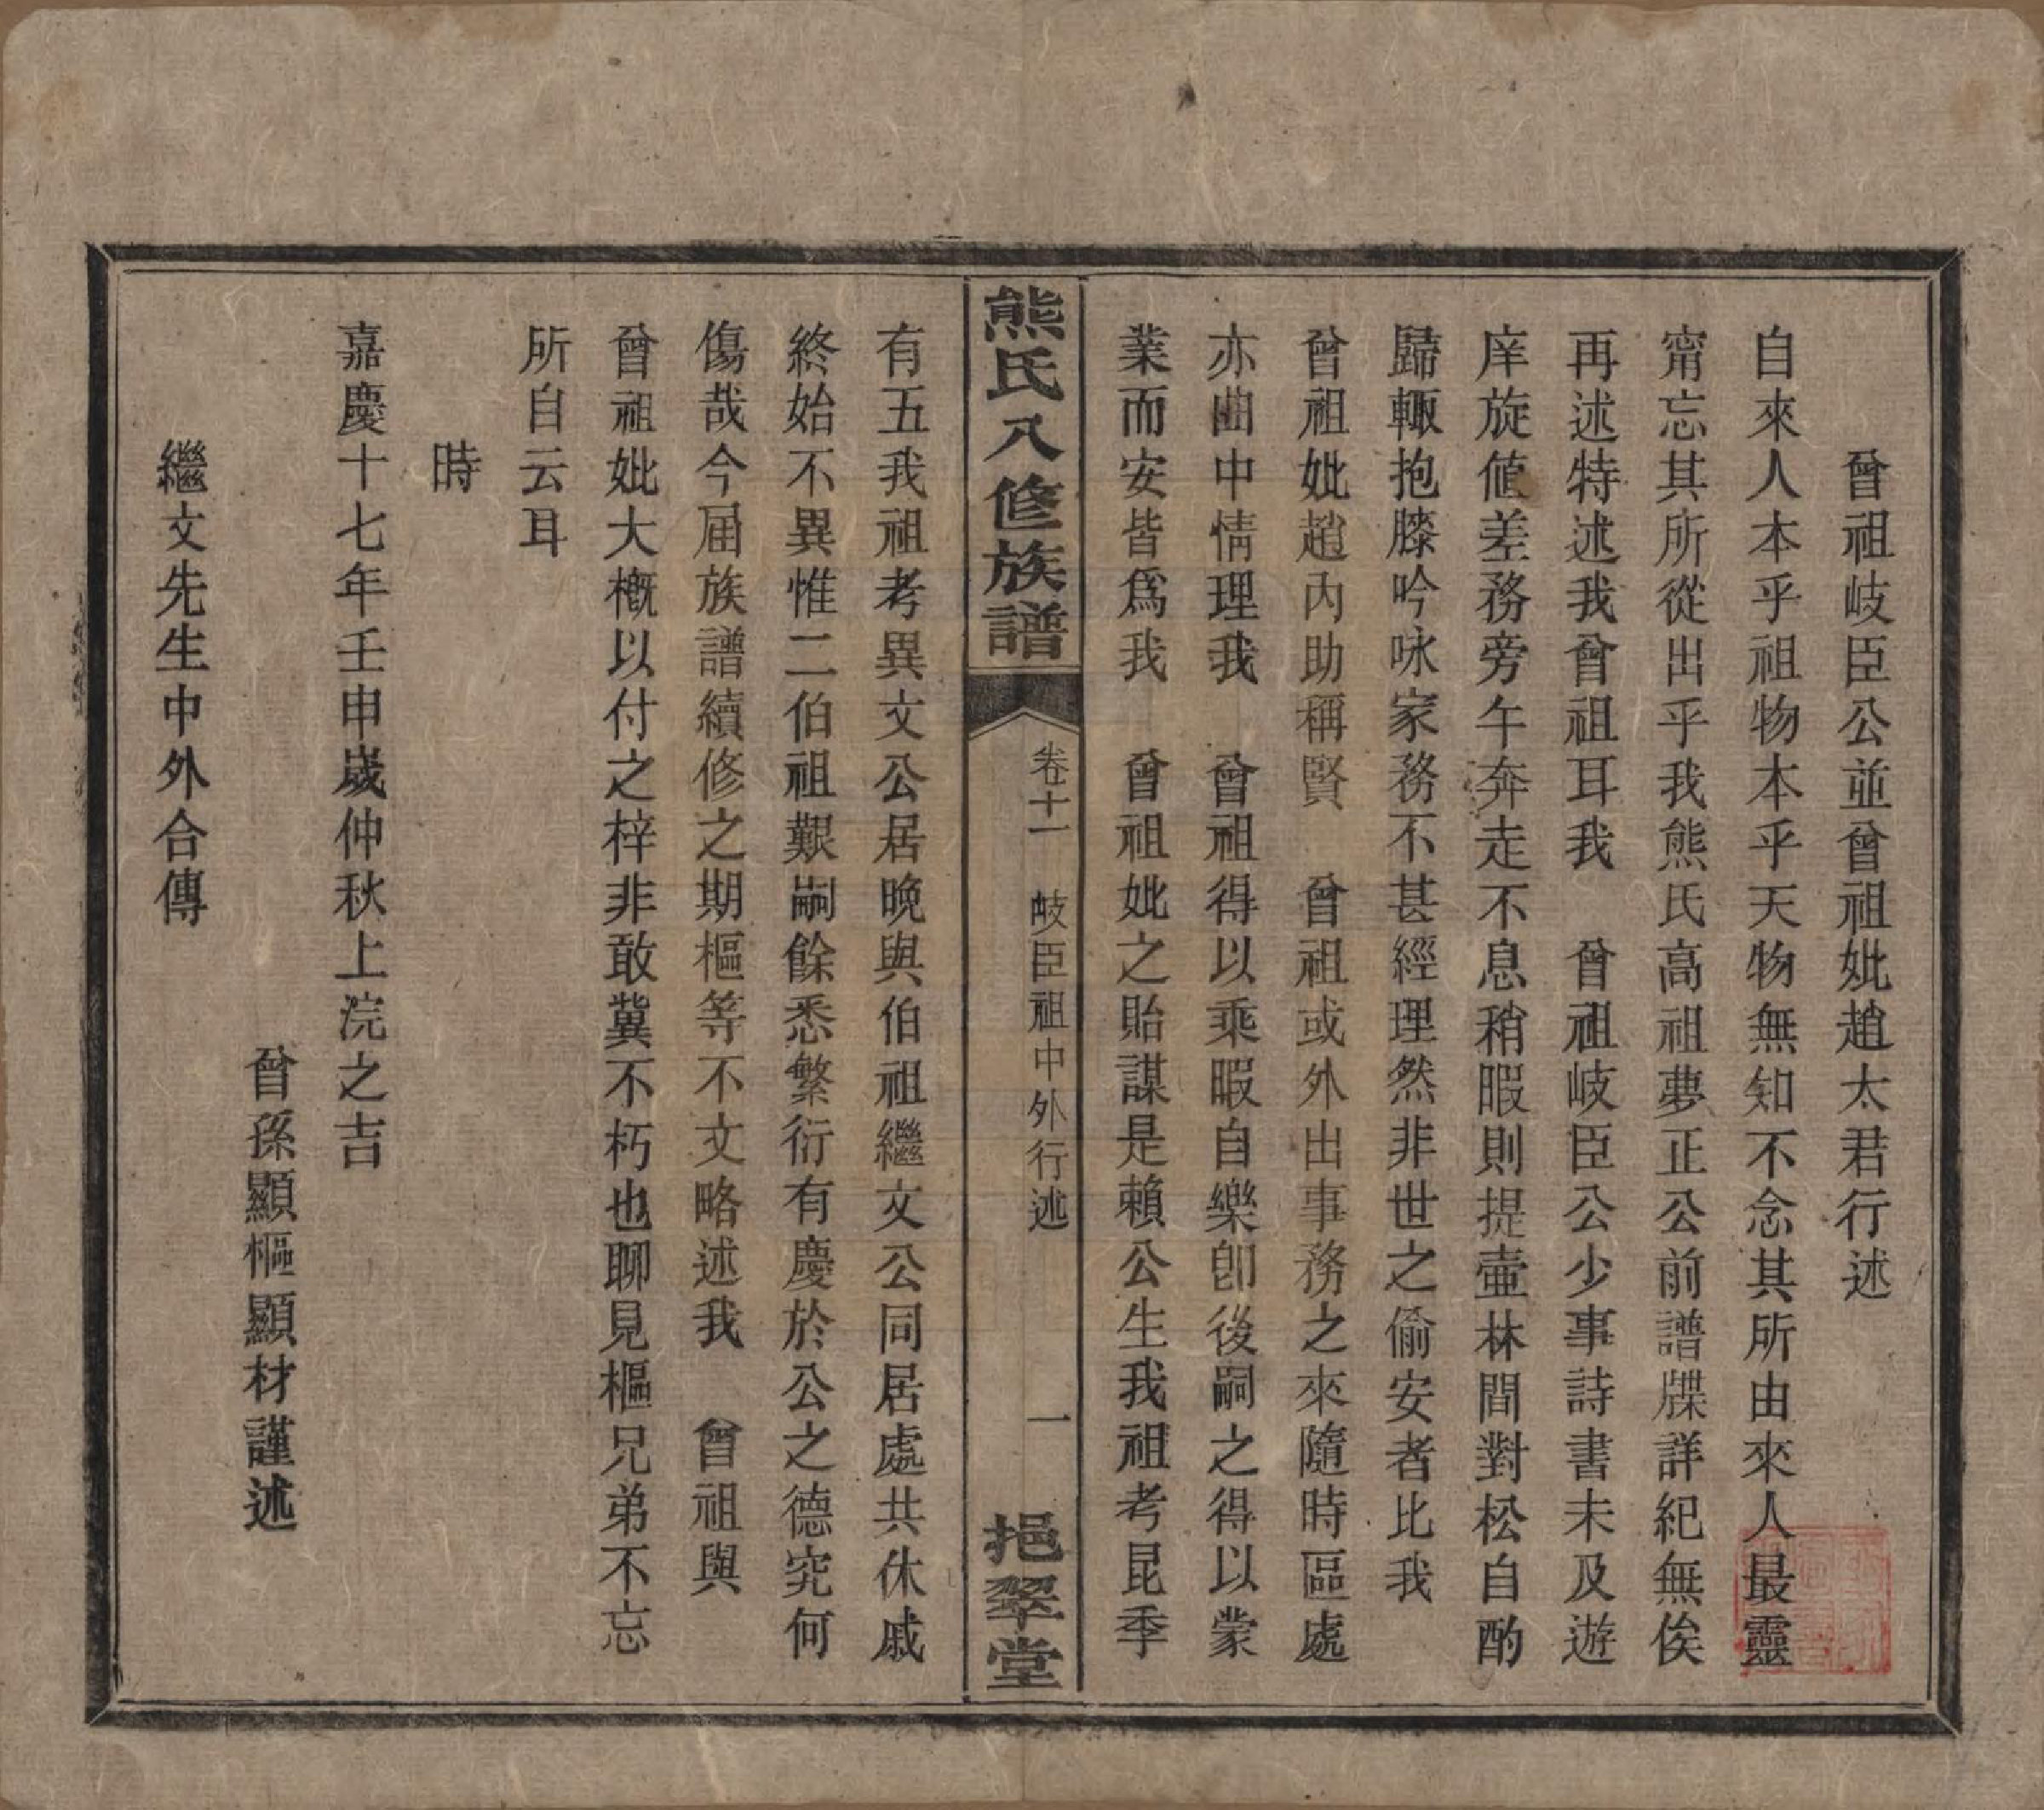 曾祖岐臣公並曾祖妣趙太君行述
自來人本乎祖物本乎天物無知不念其所由來人最靈
甯忘其所從出乎我熊氏高祖夢正公前譜牒詳紀無俟
再述特述我曾祖耳我　曾祖岐臣公少事詩書未及遊
庠旋値差務旁午奔走不息稍暇則提壷林間對松自酌
歸輙抱膝吟咏家務不甚經理然非世之偷安者比我
曾祖妣趙內助稱賢　曾祖或外出事務之來隨時區處
亦曲中情理我　曾祖得以乘暇自樂卽後嗣之得以蒙
業而安皆爲我　曾祖妣之貽謀是賴公生我祖考昆季
熊氏八修族譜
卷十一　岐臣祖中外行述　一
挹翠堂
有五我祖考異文公居晚與伯祖繼文公同居處共休戚
終始不異惟二伯祖艱嗣餘悉繁衍有慶於公之德究何
傷哉今届族譜續修之期樞等不文略述我　曾祖與
曾祖妣大槪以付之梓非敢冀不朽也聊見樞兄弟不忘
所自云耳
時
嘉慶十七年壬申嵗仲秋上浣之吉
曾孫顯樞顯材謹述
繼文先生中外合傳